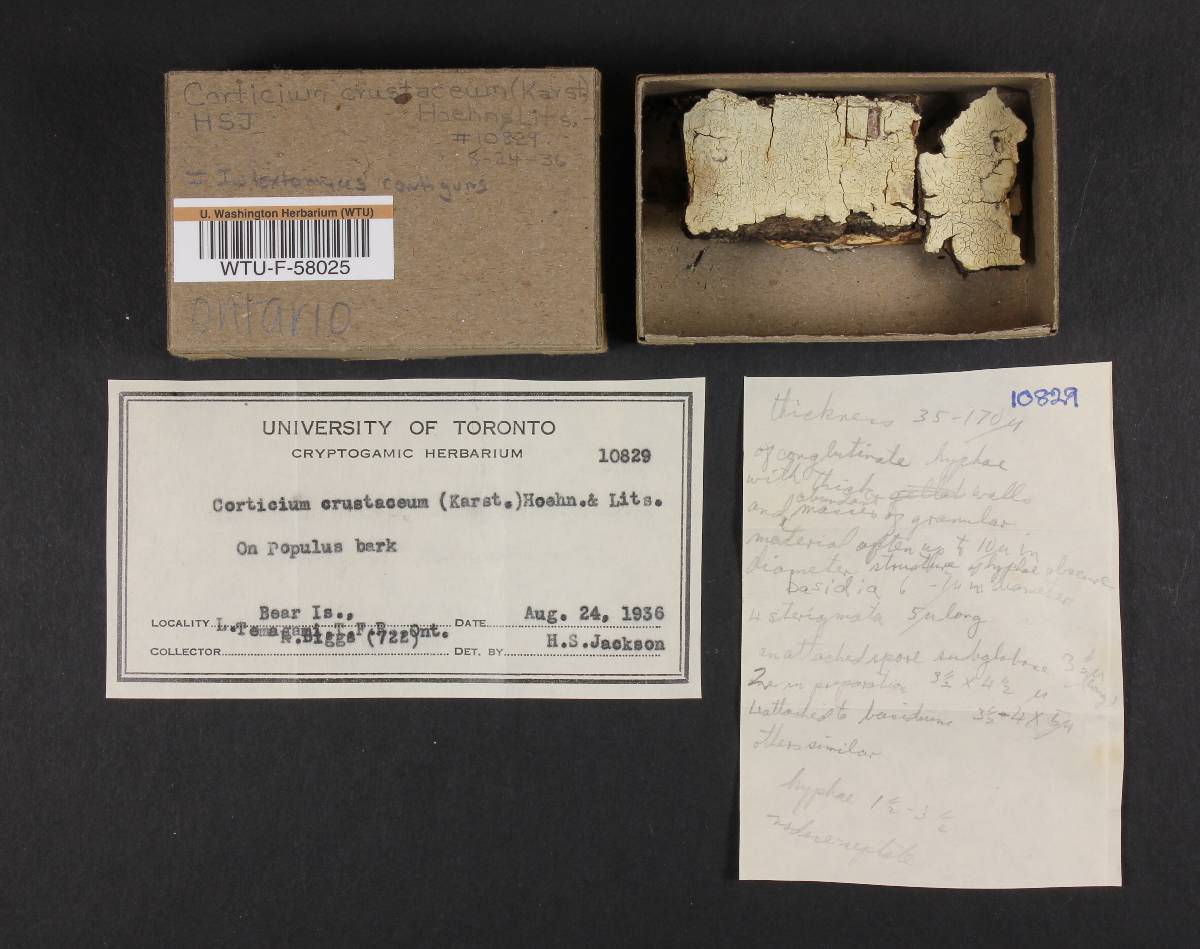 Corticium crustaceum (Karst.)
HSJ Hoehn & Lits. -
#10829
8-24-36
=
U. Washington Herbarium (WTU)
WTU-F-58025
ontario
UNIVERSITY OF TORONTO
CRYPTOGAMIC HERBARIUM 10829
Corticium crustaceum (Karst.)Hoehn.& Lits.
On Populus bark
LOCALITY Bear Is., DATE Aug. 24, 1936
L.Temagami,T.F.R. Ont.
COLLECTOR R.Biggs (722) DET. BY H.S.Jackson
10829
thickness 35-170µ
of conglutinate hyphae
with thick walls
abundant
and masses of granular
material often up to 10µ in
diameter structure of hyphae obscure
basidia 6-7µ in diameter
4 sterigmata 5µ long
an attached spore subglobose 3½µ
in preparation 3½ X 4½ µ
attached to 3½-4 X 5µ
others similar
hyphae 1½-3½
nodose septate